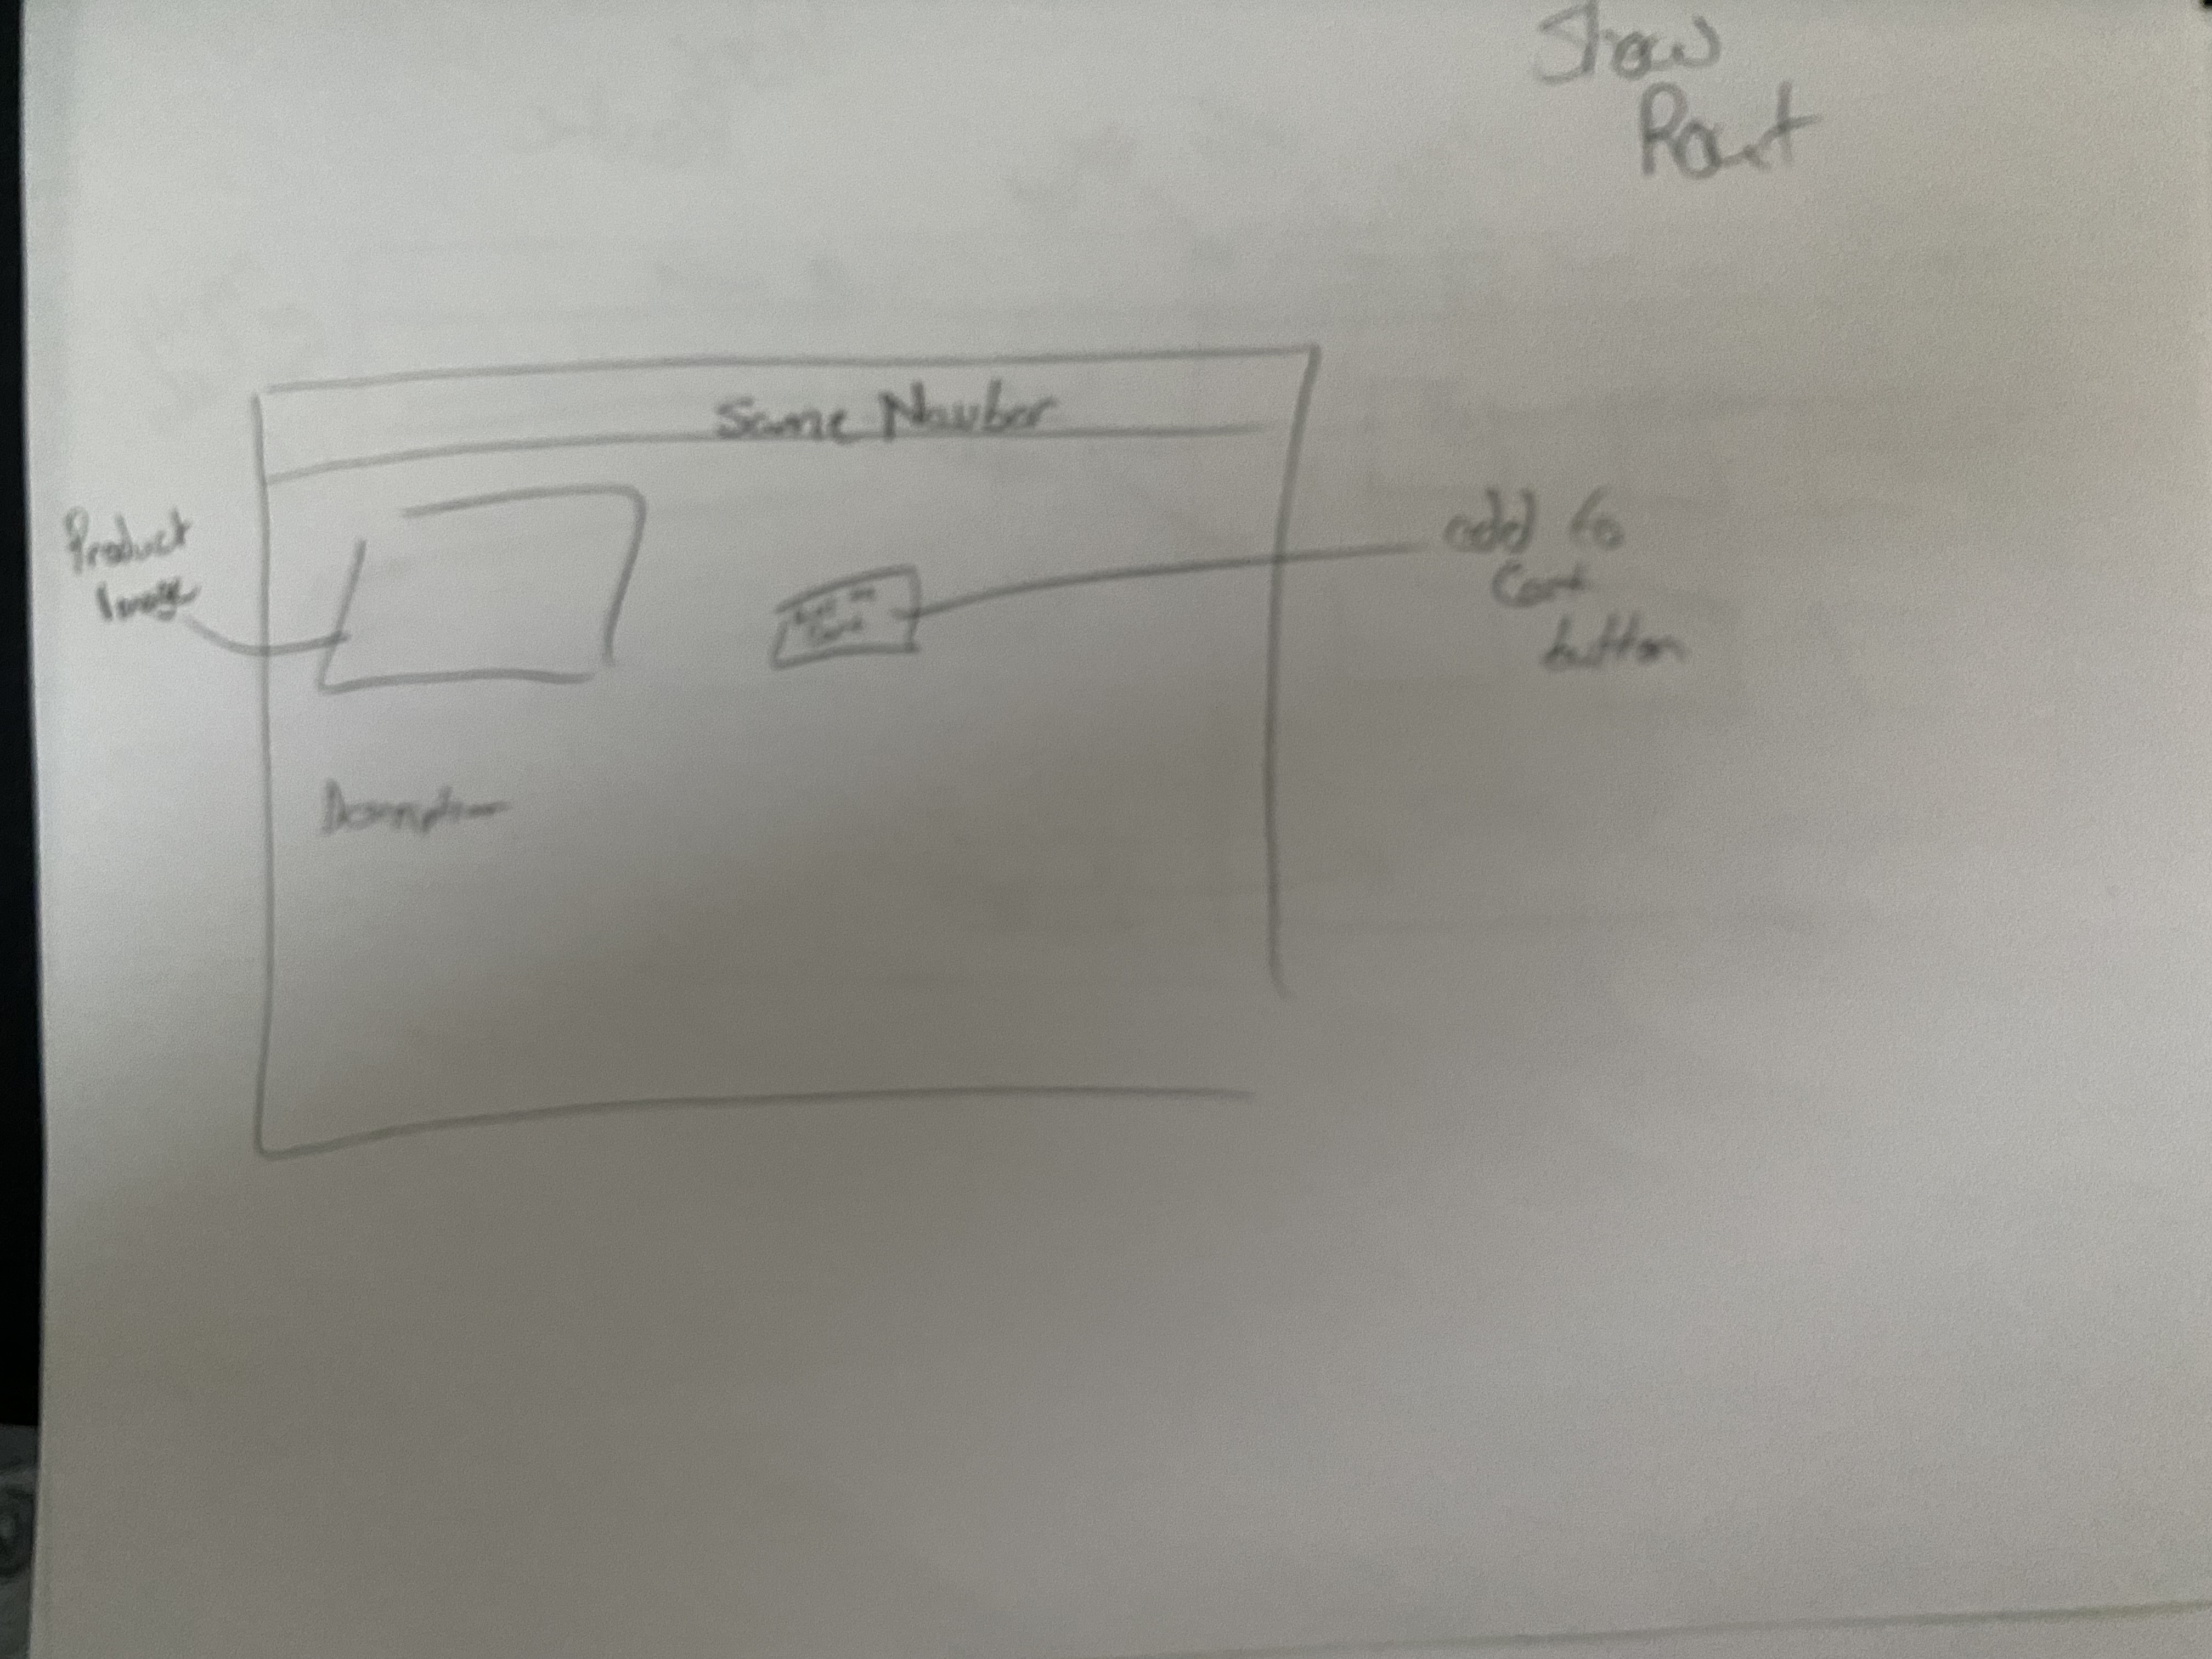 Show
Rout
Same Navbar
Product
Image
add to
Cart
button
Description